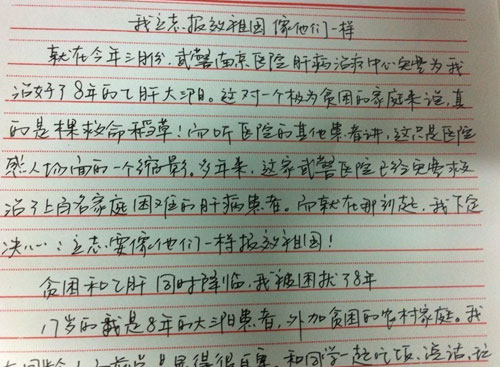 我立志报效祖国 像他们一样
就在今年三月份,武警南京医院肝病治疗中心免费为我
治好了8年的乙肝大三阳。这对一个极为贫困的家庭来说,真
的是棵救命稻草!而听医院的其他患者讲,这只是医院
感人场面的一个缩影。多年来,这家武警医院已经免费救
治了上百名家庭困难的肝病患者。而就在那刻起,我下定
决心:立志要像他们一样报效祖国!
贫困和乙肝同时降临,我被困扰了8年
17岁的我是8年的大三阳患者,外加贫困的农村家庭。我
和同学一起吃饭、谈话、玩